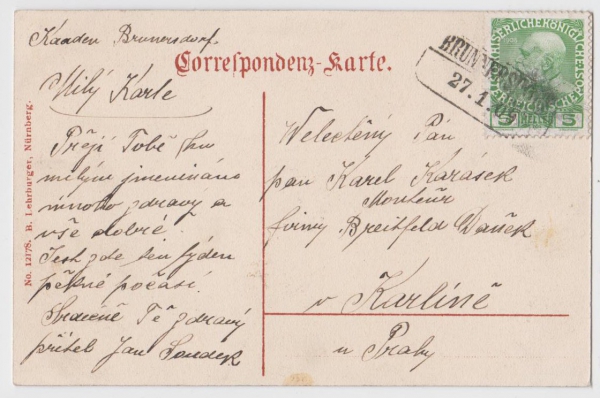 Kaaden Brunnersdorf.
Correspondenz-Karte.
Milý Karle
Přeji Tobě ku
milým jmeninám
mnoho zdravý a
vše dobré.
Jest zde ten týden
pěkné počasí.
Srdečně Tě zdravý
přítel Jan Soudek
Veléctěný Pán
pan Karel Karásek
Monteur
firmy Breitfeld Daněk
v Karlíně
u Prahy
No. 12178. B. Lehrburger, Nürnberg.
BRUNNERSDORF
27.1.09
KAISERLICHE KÖNIGLICHE
ÖSTERREICHISCHE POST
5 HELLER 5